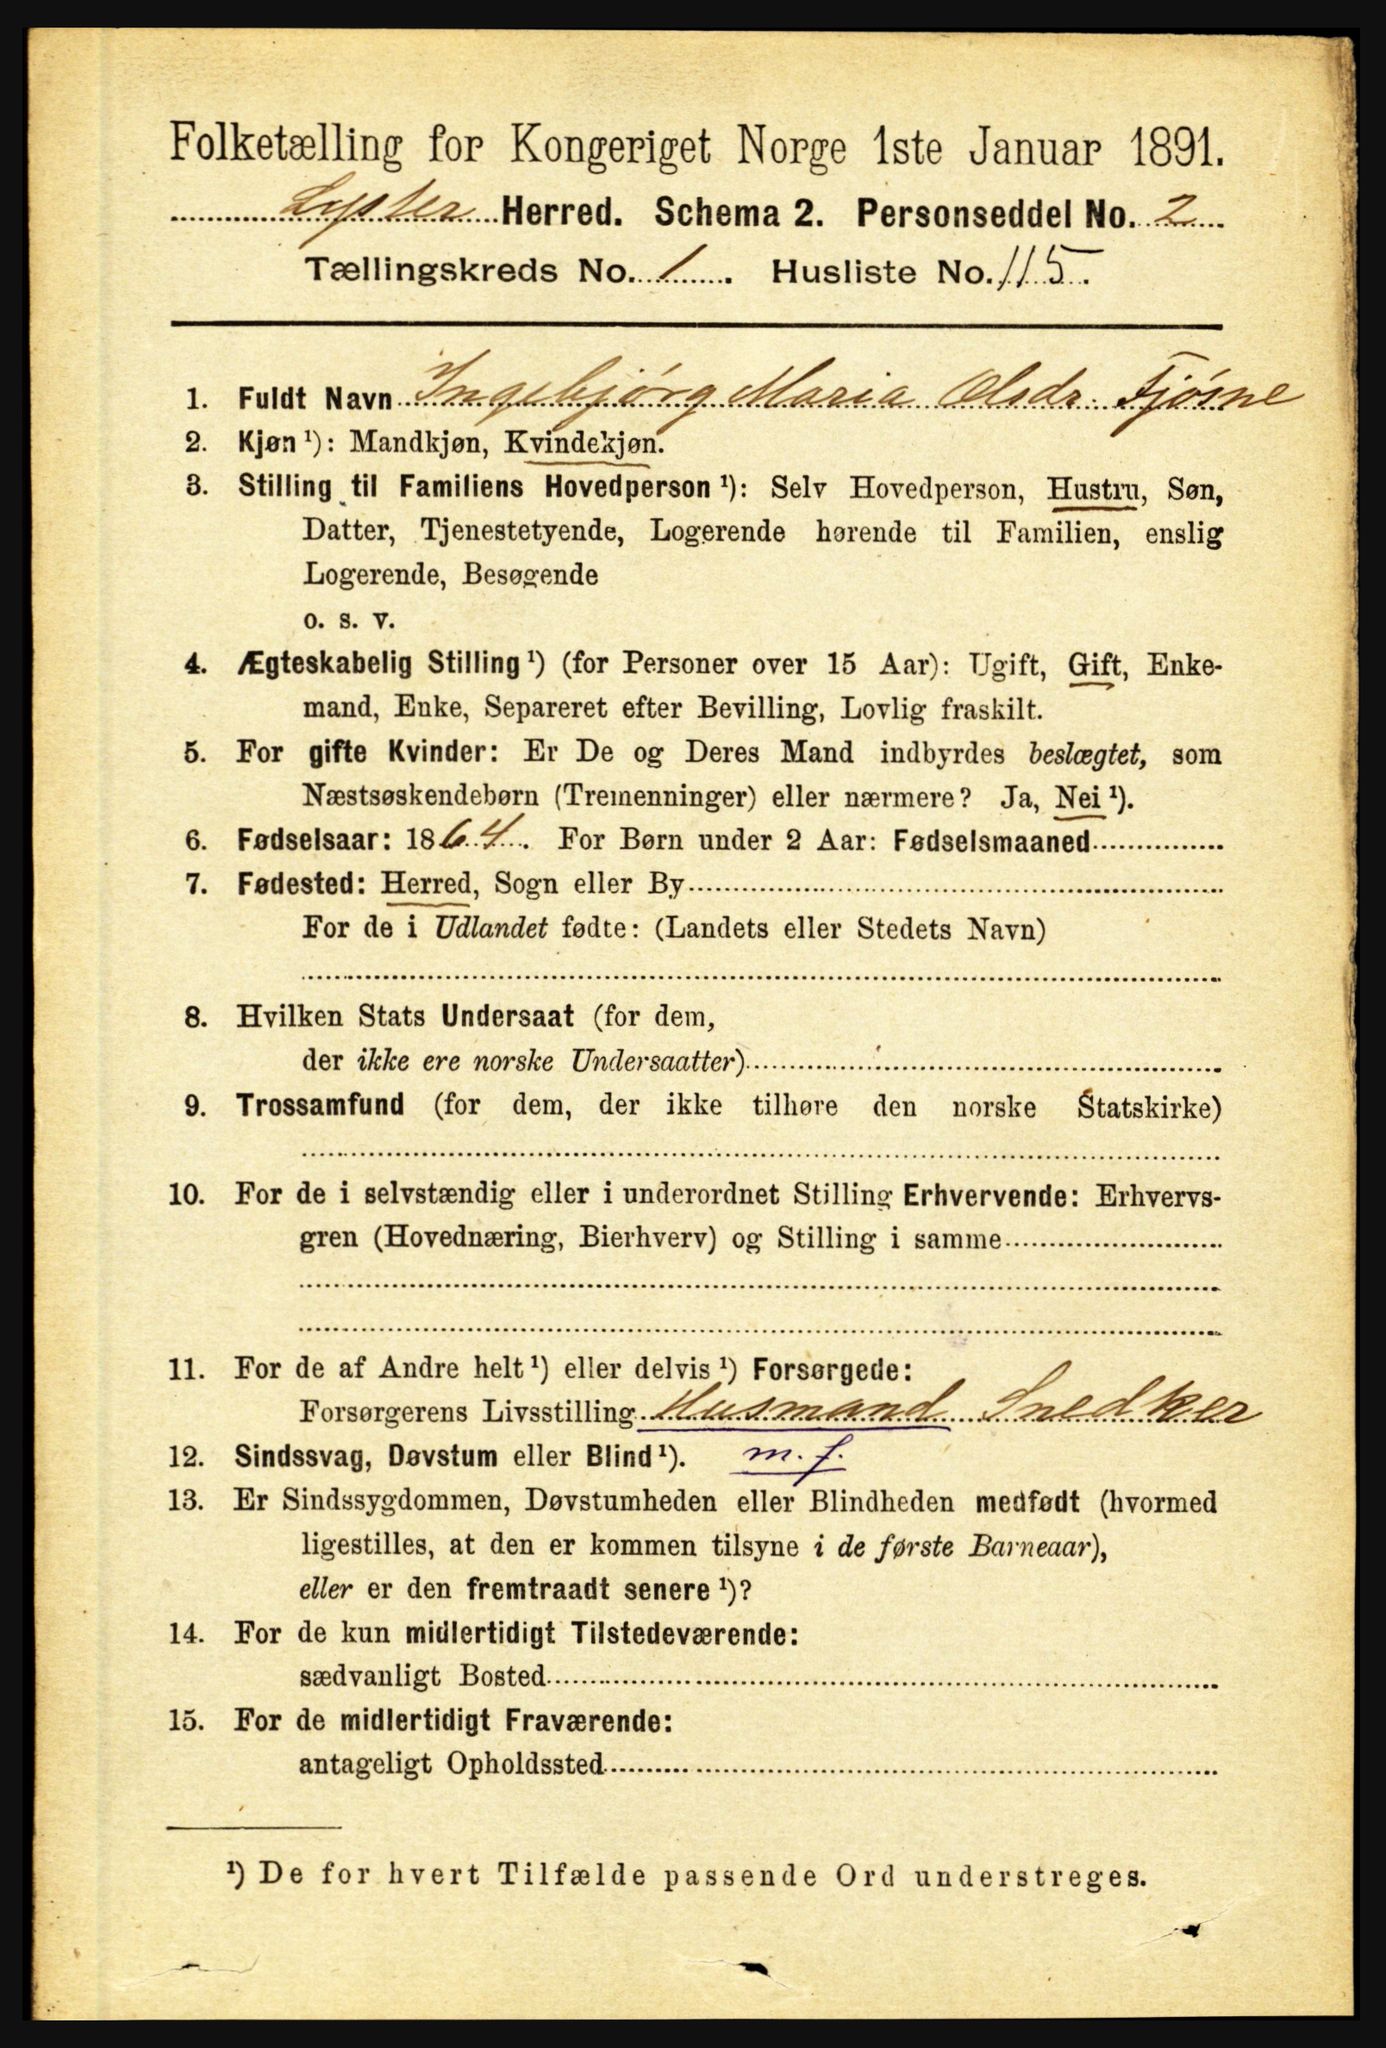 Folketælling for Kongeriget Norge 1ste Januar 1891.
Lyster Herred. Schema 2. Personseddel No. 2
Tællingskreds No. 1. Husliste No. 115.
1. Fuldt Navn Ingebjørg Maria Olsdr. Fjøsne
2. Kjøn ¹): Mandkjøn, Kvindekjøn.
3. Stilling til Familiens Hovedperson ¹): Selv Hovedperson, Hustru, Søn,
Datter, Tjenestetyende, Logerende hørende til Familien, enslig
Logerende, Besøgende
o. s. v.
4. Ægteskabelig Stilling ¹) (for Personer over 15 Aar): Ugift, Gift, Enke-
mand, Enke, Separeret efter Bevilling, Lovlig fraskilt.
5. For gifte Kvinder: Er De og Deres Mand indbyrdes beslægtet, som
Næstsøskendebørn (Tremenninger) eller nærmere? Ja, Nei ¹).
6. Fødselsaar: 1864. For Børn under 2 Aar: Fødselsmaaned
7. Fødested: Herred, Sogn eller By
For de i Udlandet fødte: (Landets eller Stedets Navn)
8. Hvilken Stats Undersaat (for dem,
der ikke ere norske Undersaatter)
9. Trossamfund (for dem, der ikke tilhøre den norske Statskirke)
10. For de i selvstændig eller i underordnet Stilling Erhvervende: Erhvervs-
gren (Hovednæring, Bierhverv) og Stilling i samme
11. For de af Andre helt ¹) eller delvis ¹) Forsørgede:
Forsørgerens Livsstilling Husmand Snedker
12. Sindssvag, Døvstum eller Blind ¹). m. f.
13. Er Sindssygdommen, Døvstumheden eller Blindheden medfødt (hvormed
ligestilles, at den er kommen tilsyne i de første Barneaar),
eller er den fremtraadt senere ¹)?
14. For de kun midlertidigt Tilstedeværende:
sædvanligt Bosted
15. For de midlertidigt Fraværende:
antageligt Opholdssted
¹) De for hvert Tilfælde passende Ord understreges.